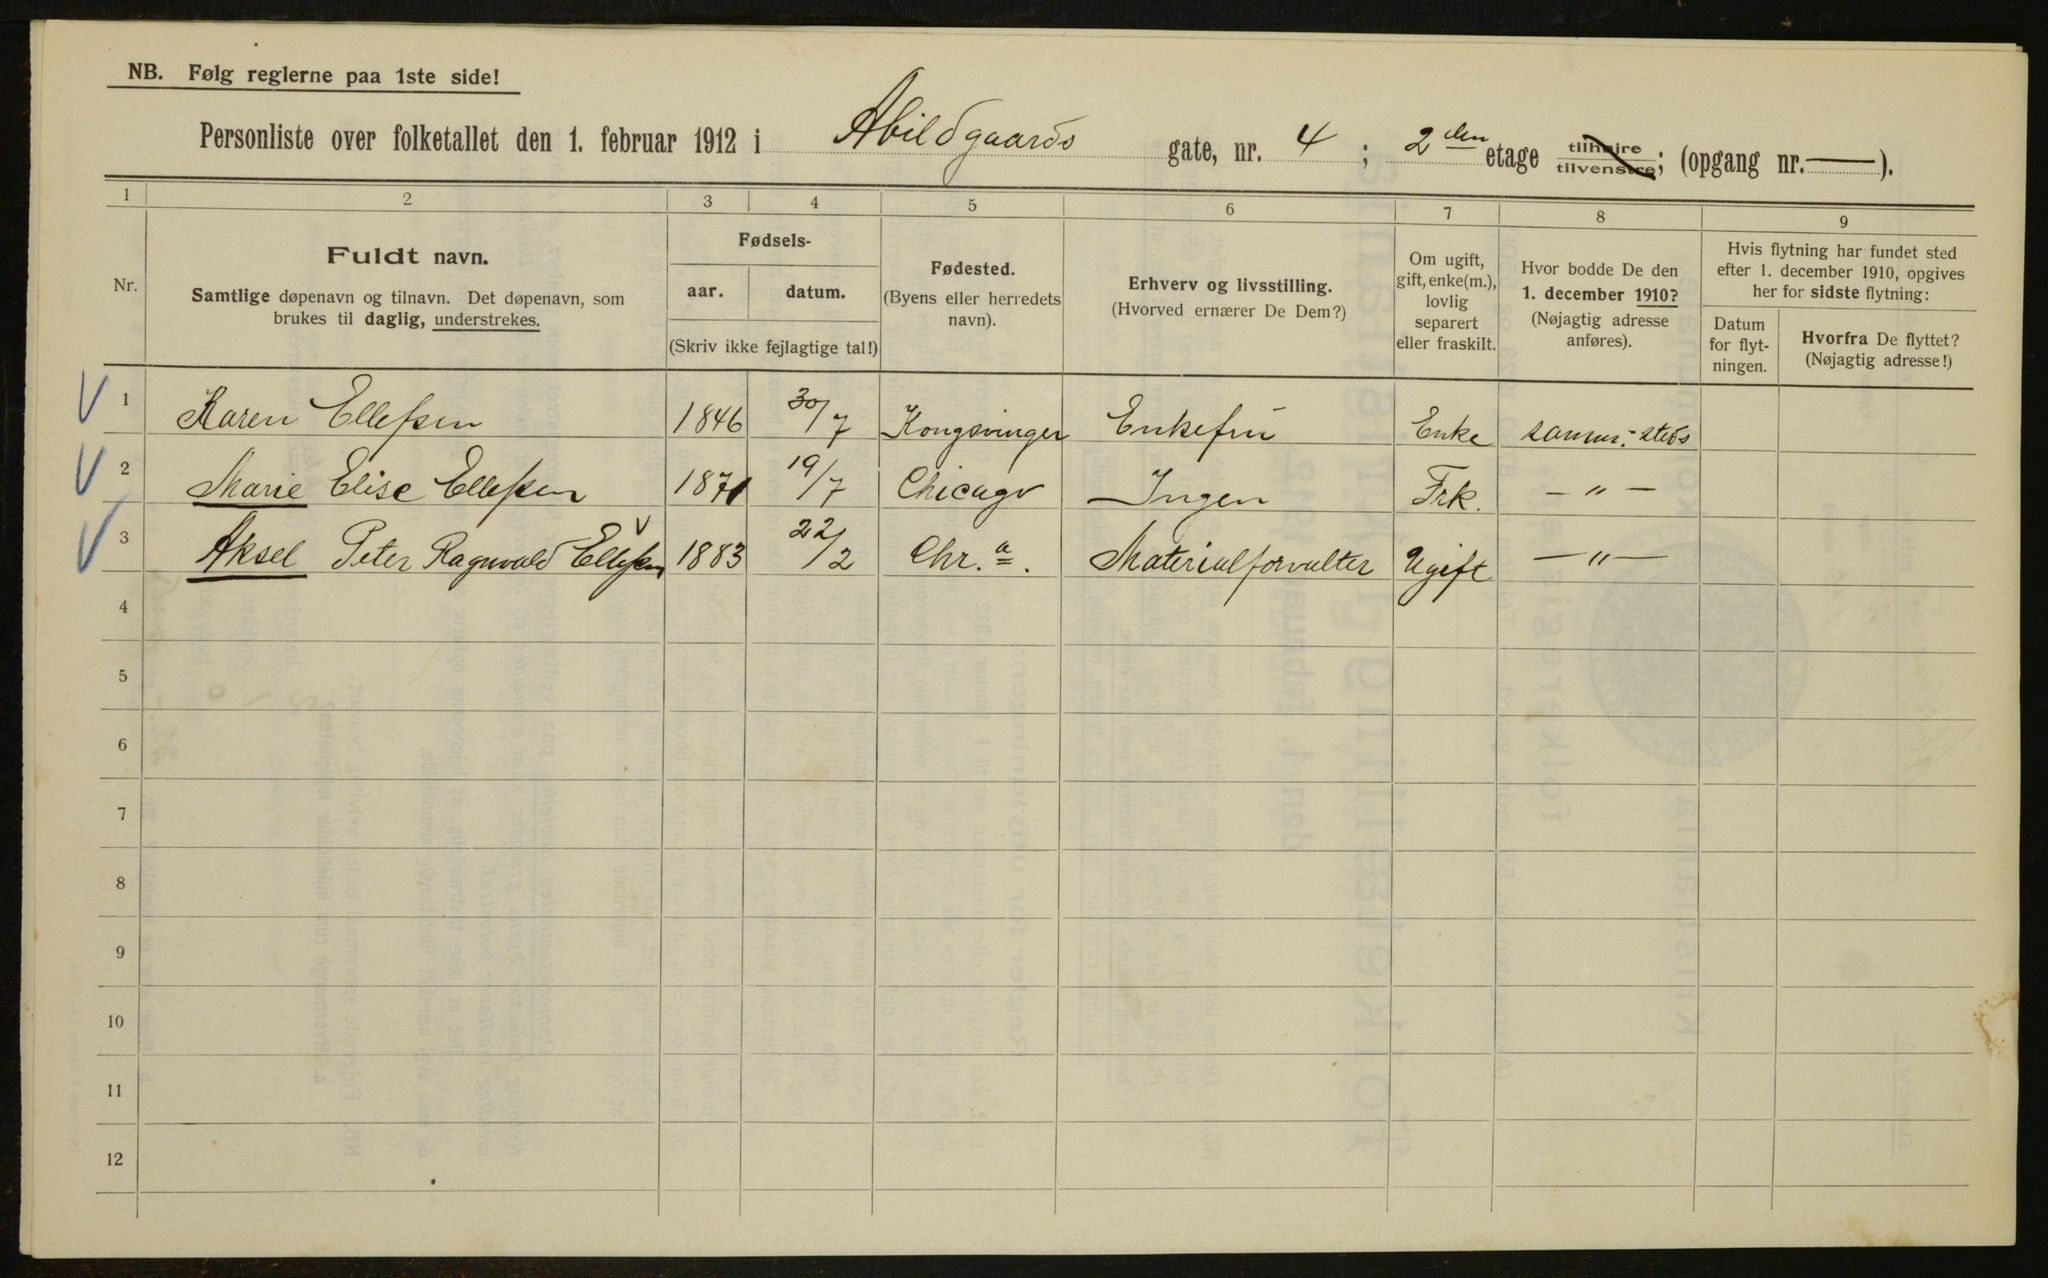 NB. Følg reglerne paa 1ste side!
Personliste over folketallet den 1. februar 1912 i Abildgaards gate, nr. 4; 2den etage tilhøire/tilvenstre; (opgang nr. —).
1 2 3 4 5 6 7 8 9
Nr.
Fuldt navn.
Samtlige døpenavn og tilnavn. Det døpenavn, som
brukes til daglig, understrekes.
Fødsels-
aar. datum.
(Skriv ikke fejlagtige tal!)
Fødested.
(Byens eller herredets
navn).
Erhverv og livsstilling.
(Hvorved ernærer De Dem?)
Om ugift,
gift, enke(m.),
lovlig
separert
eller fraskilt.
Hvor bodde De den
1. december 1910?
(Nøjagtig adresse
anføres).
Hvis flytning har fundet sted
efter 1. december 1910, opgives
her for sidste flytning:
Datum
for flyt-
ningen.
Hvorfra De flyttet?
(Nøjagtig adresse!)
1 Karen Ellefsen 1846 30/7 Kongsvinger Enkefru Enke samm. steds
2 Marie Elise Ellefsen 1871 19/7 Chicago Ingen Frk. — " —
3 Aksel Peter Ragnvald Ellefsen 1883 22/2 Chr.a. Materialforvalter Ugift — " —
4
5
6
7
8
9
10
11
12